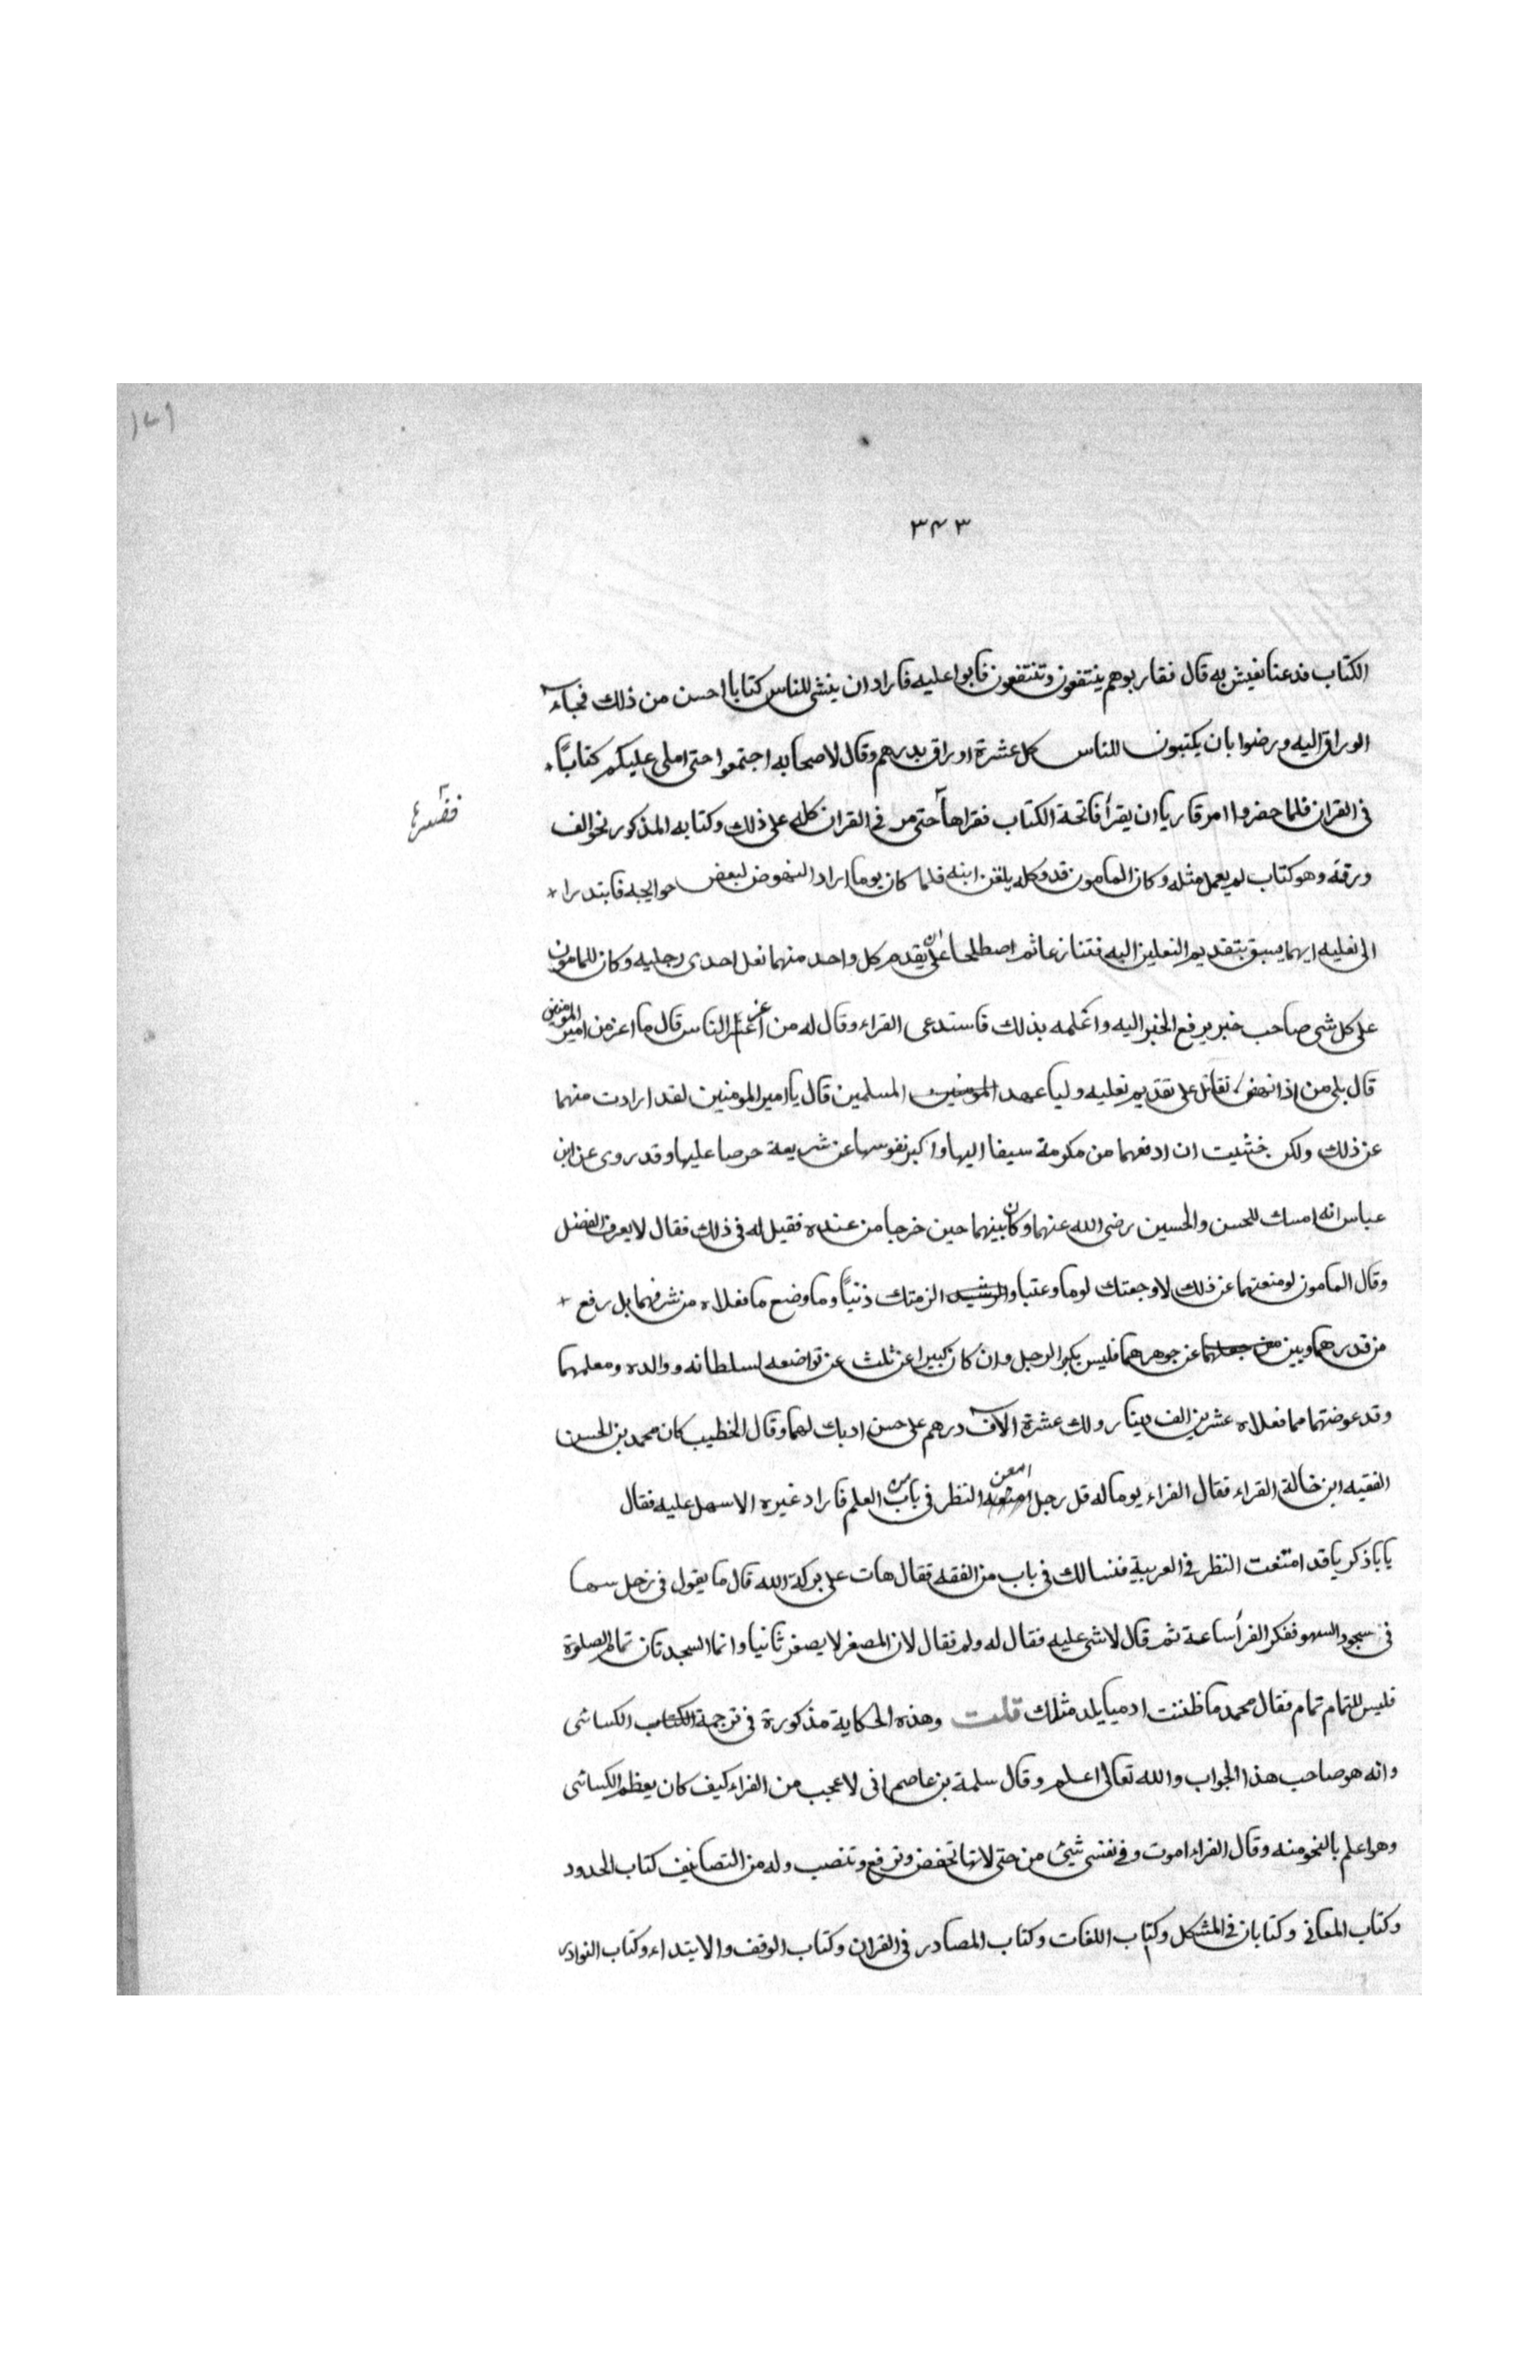 ١٧١
٣٤٣
الكتاب فدعنا نعيش به قال فقاربوهم ينتفعون وتنتفعون فابوا عليه فاراد ان ينشى للناس كتابا احسن من ذلك فجاء
الوراق اليه ورضوا بان يكتبون للناس كل عشرة اوراق بدرهم وقال لاصحابه اجتمعوا حتى املى عليكم كتابًا
فى القران فلما حضروا امر قاريا ان يقرأ فاتحة الكتاب فقراها حتى مر فى القران كله على ذلك وكتابه المذكور نحو الف
ففسرها
ورقة وهو كتاب لم يعمل مثله وكان المامون قد وكله يلقن ابنه فلما كان يوما اراد النهوض لبعض حوايجه فابتدرا
الى نعليه ايهما يسبق بتقديم النعلين اليه فتنازعا ثم اصطلحا على ان يقدم كل واحد منهما نعل احدى رجليه وكان للمامون
على كل شى صاحب خبر يرفع الخبر اليه واعلمه بذلك فاستدعى الفراء وقال له من اعز الناس قال ما اعز من امير المومنين
قال بلى من اذا نهض تقاتل على تقديم نعليه وليا عهد المومنين المسلمين قال يا امير المومنين لقد اردت منهما
عن ذلك ولكن خشيت ان ادفعهما من مكرمة سبقا اليها واكبر نفوسها عن شريعة حرصا عليها وقد روى عن ابن
عباس انه امسك للحسن والحسين رضى الله عنهما وكان بينهما حين خرجا من عنده فقيل له فى ذلك فقال لا يعرف الفضل
وقال المامون لو منعتهما عن ذلك لاوجعتك لوما وعتبا والزمتك ذنبًا وما وضع ما فعلاه من شرفهما بل رفع
من قدرهما وبين عن جوهرهما فليس يكبر الرجل وان كان كبيرا عن ثلث عن تواضعه لسلطانه ووالده ومعلمهما
وقد عوضتهما مما فعلاه عشرين الف دينار ولك عشرة الاف درهم على حسن ادبك لهما وقال الخطيب كان محمد بن الحسن
الفقيه ابن خالة الفراء فقال الفراء يوما له قل رجل امعن النظر فى باب من العلم فاراد غيره الا سهل عليه فقال
يا با ذكريا قد امتنعت النظر فى العربية فنسالك فى باب من الفقه فقال هات على بركة الله قال ما يقول فى رجل سها
فى سجود السهو ففكر الفرأ ساعة ثم قال لا شى عليه فقال له ولم فقال لان المصغر لا يصغر ثانيا وانما السجدتان تمام الصلوة
فليس للتمام تمام فقال محمد ما ظننت ادميا يلد مثلك قلت وهذه الحكاية مذكورة فى ترجمة الكتاب الكسائى
وانه هو صاحب هذا الجواب والله تعالى اعلم وقال سلمة بن عاصم انى لاعجب من الفراء كيف كان يعظم الكسائى
وهو اعلم بالنحو منه وقال الفراء اموت وفى نفسى شيئ من حتى لانها تخفض وترفع وتنصب وله من التصانيف كتاب الحدود
وكتاب المعانى وكتابان فى المشكل وكتاب اللغات وكتاب المصادر فى القران وكتاب الوقف والابتداء وكتاب النوادر